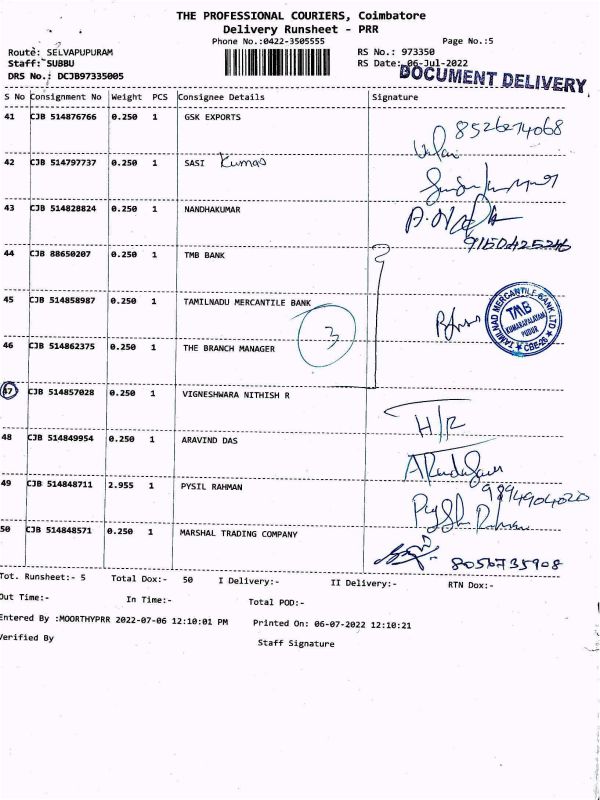 THE PROFESSIONAL COURIERS, Coimbatore
Delivery Runsheet - PRR
Phone No.:0422-3505555
Page No.:5
Route: SELVAPUPURAM
RS No.: 973350
Staff: SUBBU
RS Date: 06-Jul-2022
DRS No.: DCJB97335005
DOCUMENT DELIVERY
S No Consignment No Weight PCS Consignee Details Signature
41 CJB 514876766 0.250 1 GSK EXPORTS
8526274068
42 CJB 514797737 0.250 1 SASI Kumar
43 CJB 514828824 0.250 1 NANDHAKUMAR
9150425246
44 CJB 88650207 0.250 1 TMB BANK
45 CJB 514858987 0.250 1 TAMILNADU MERCANTILE BANK
TAMILNAD MERCANTILE BANK LTD
TMB
KUMARAPALAYAM
PUDUR
CBE-26
3
46 CJB 514862375 0.250 1 THE BRANCH MANAGER
47 CJB 514857028 0.250 1 VIGNESHWARA NITHISH R
H/R
48 CJB 514849954 0.250 1 ARAVIND DAS
49 CJB 514848711 2.955 1 PYSIL RAHMAN
9894904020
50 CJB 514848571 0.250 1 MARSHAL TRADING COMPANY
8056735908
Tot. Runsheet:- 5 Total Dox:- 50 I Delivery:- II Delivery:- RTN Dox:-
Out Time:- In Time:- Total POD:-
Entered By :MOORTHYPRR 2022-07-06 12:10:01 PM Printed On: 06-07-2022 12:10:21
Verified By Staff Signature